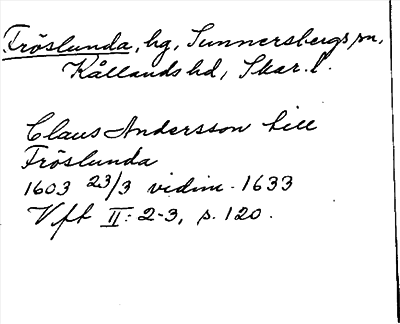 Fröslunda, hg, Sunnersbergs sn,
Kållands hd, Skar. l.
Claus Andersson till
Fröslunda
1603 23/3 vidim. 1633
Vft II: 2-3, s. 120.